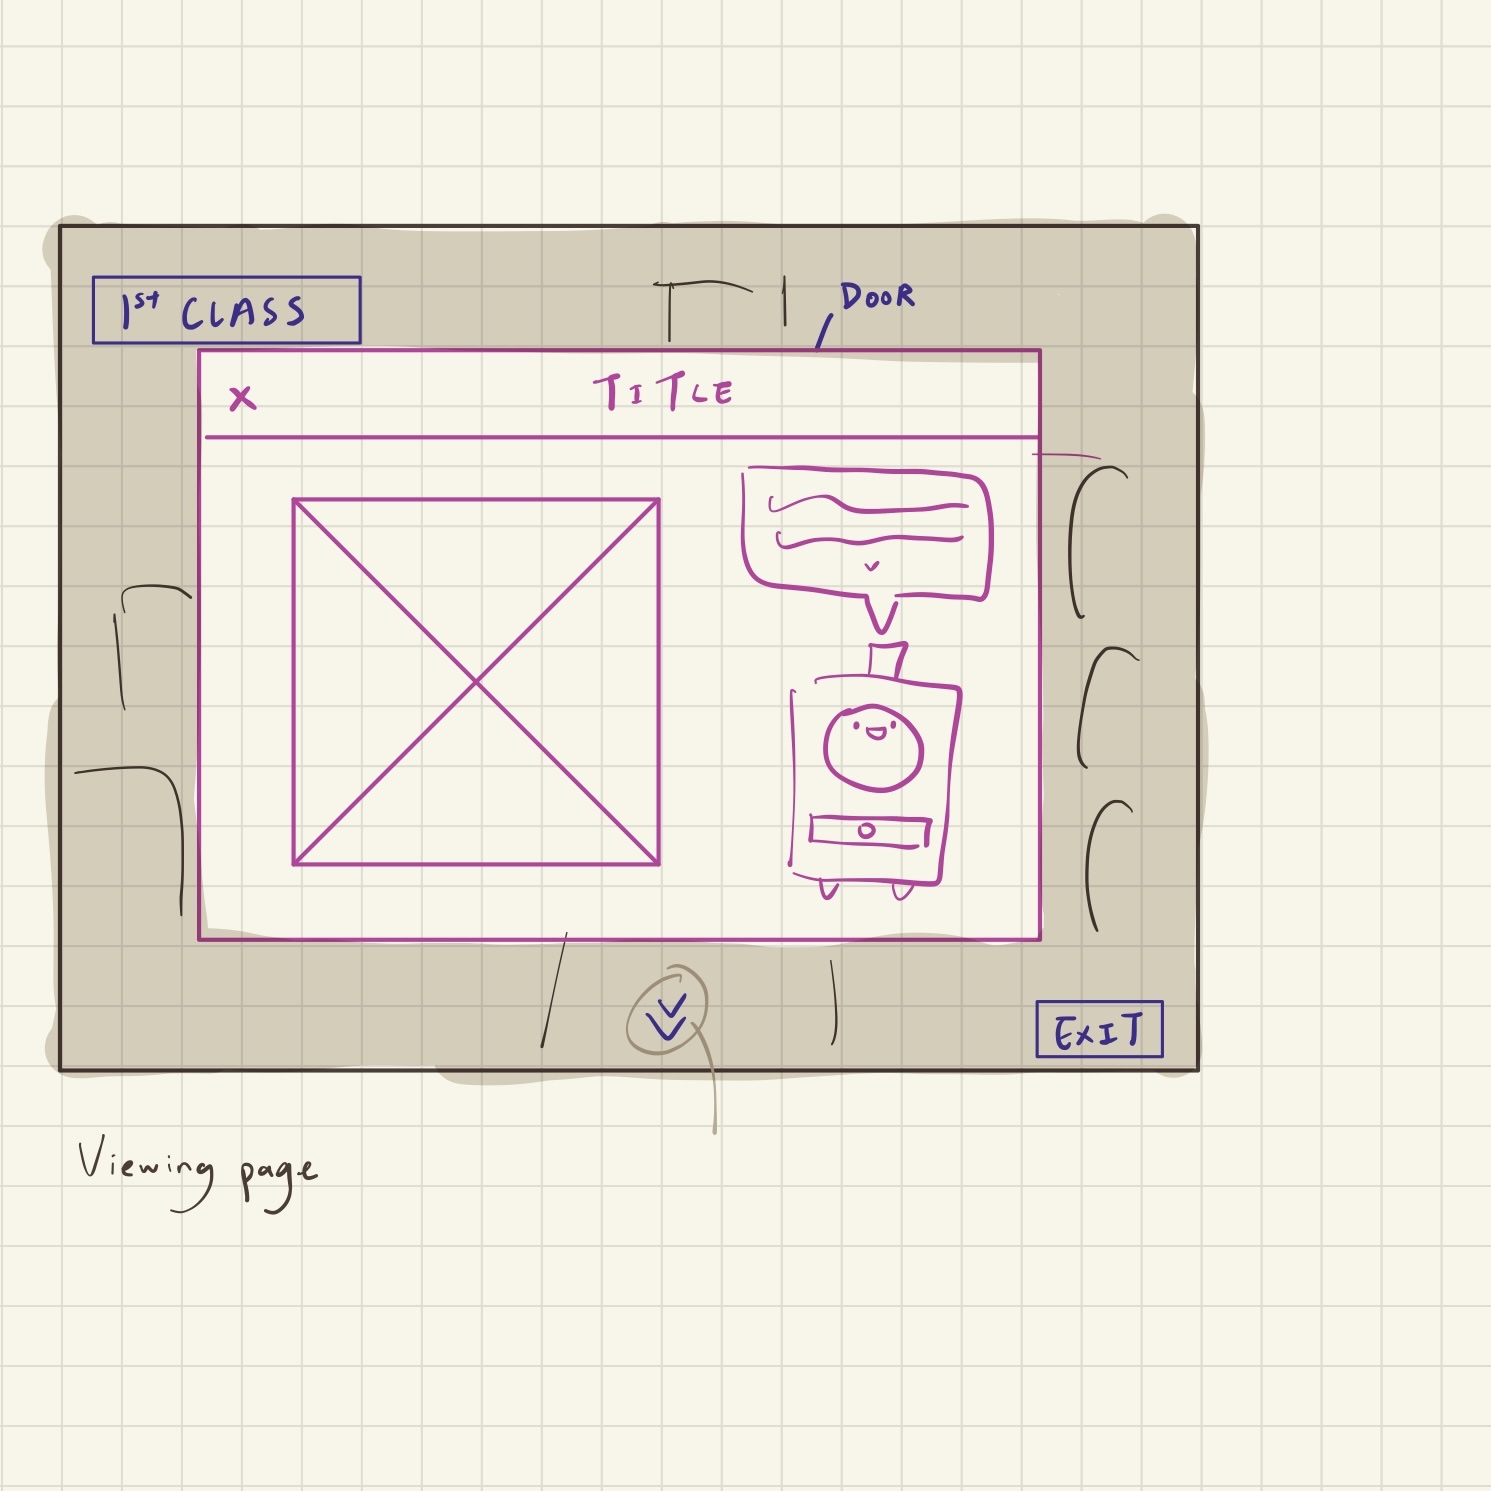 1st CLASS
DOOR
X TiTLE
ExiT
Viewing page